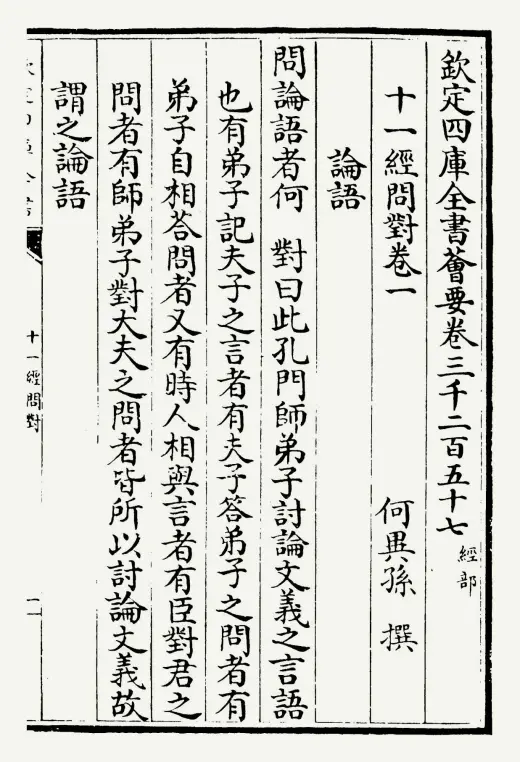 欽定四庫全書薈要卷三千二百五十七 經部
十一經問對卷一
何異孫 撰
論語
問論語者何 對曰此孔門師弟子討論文義之言語
也有弟子記夫子之言者有夫子答弟子之問者有
弟子自相荅問者又有時人相與言者有臣對君之
問者有師弟子對大夫之問者皆所以討論文義故
謂之論語
十一經問對